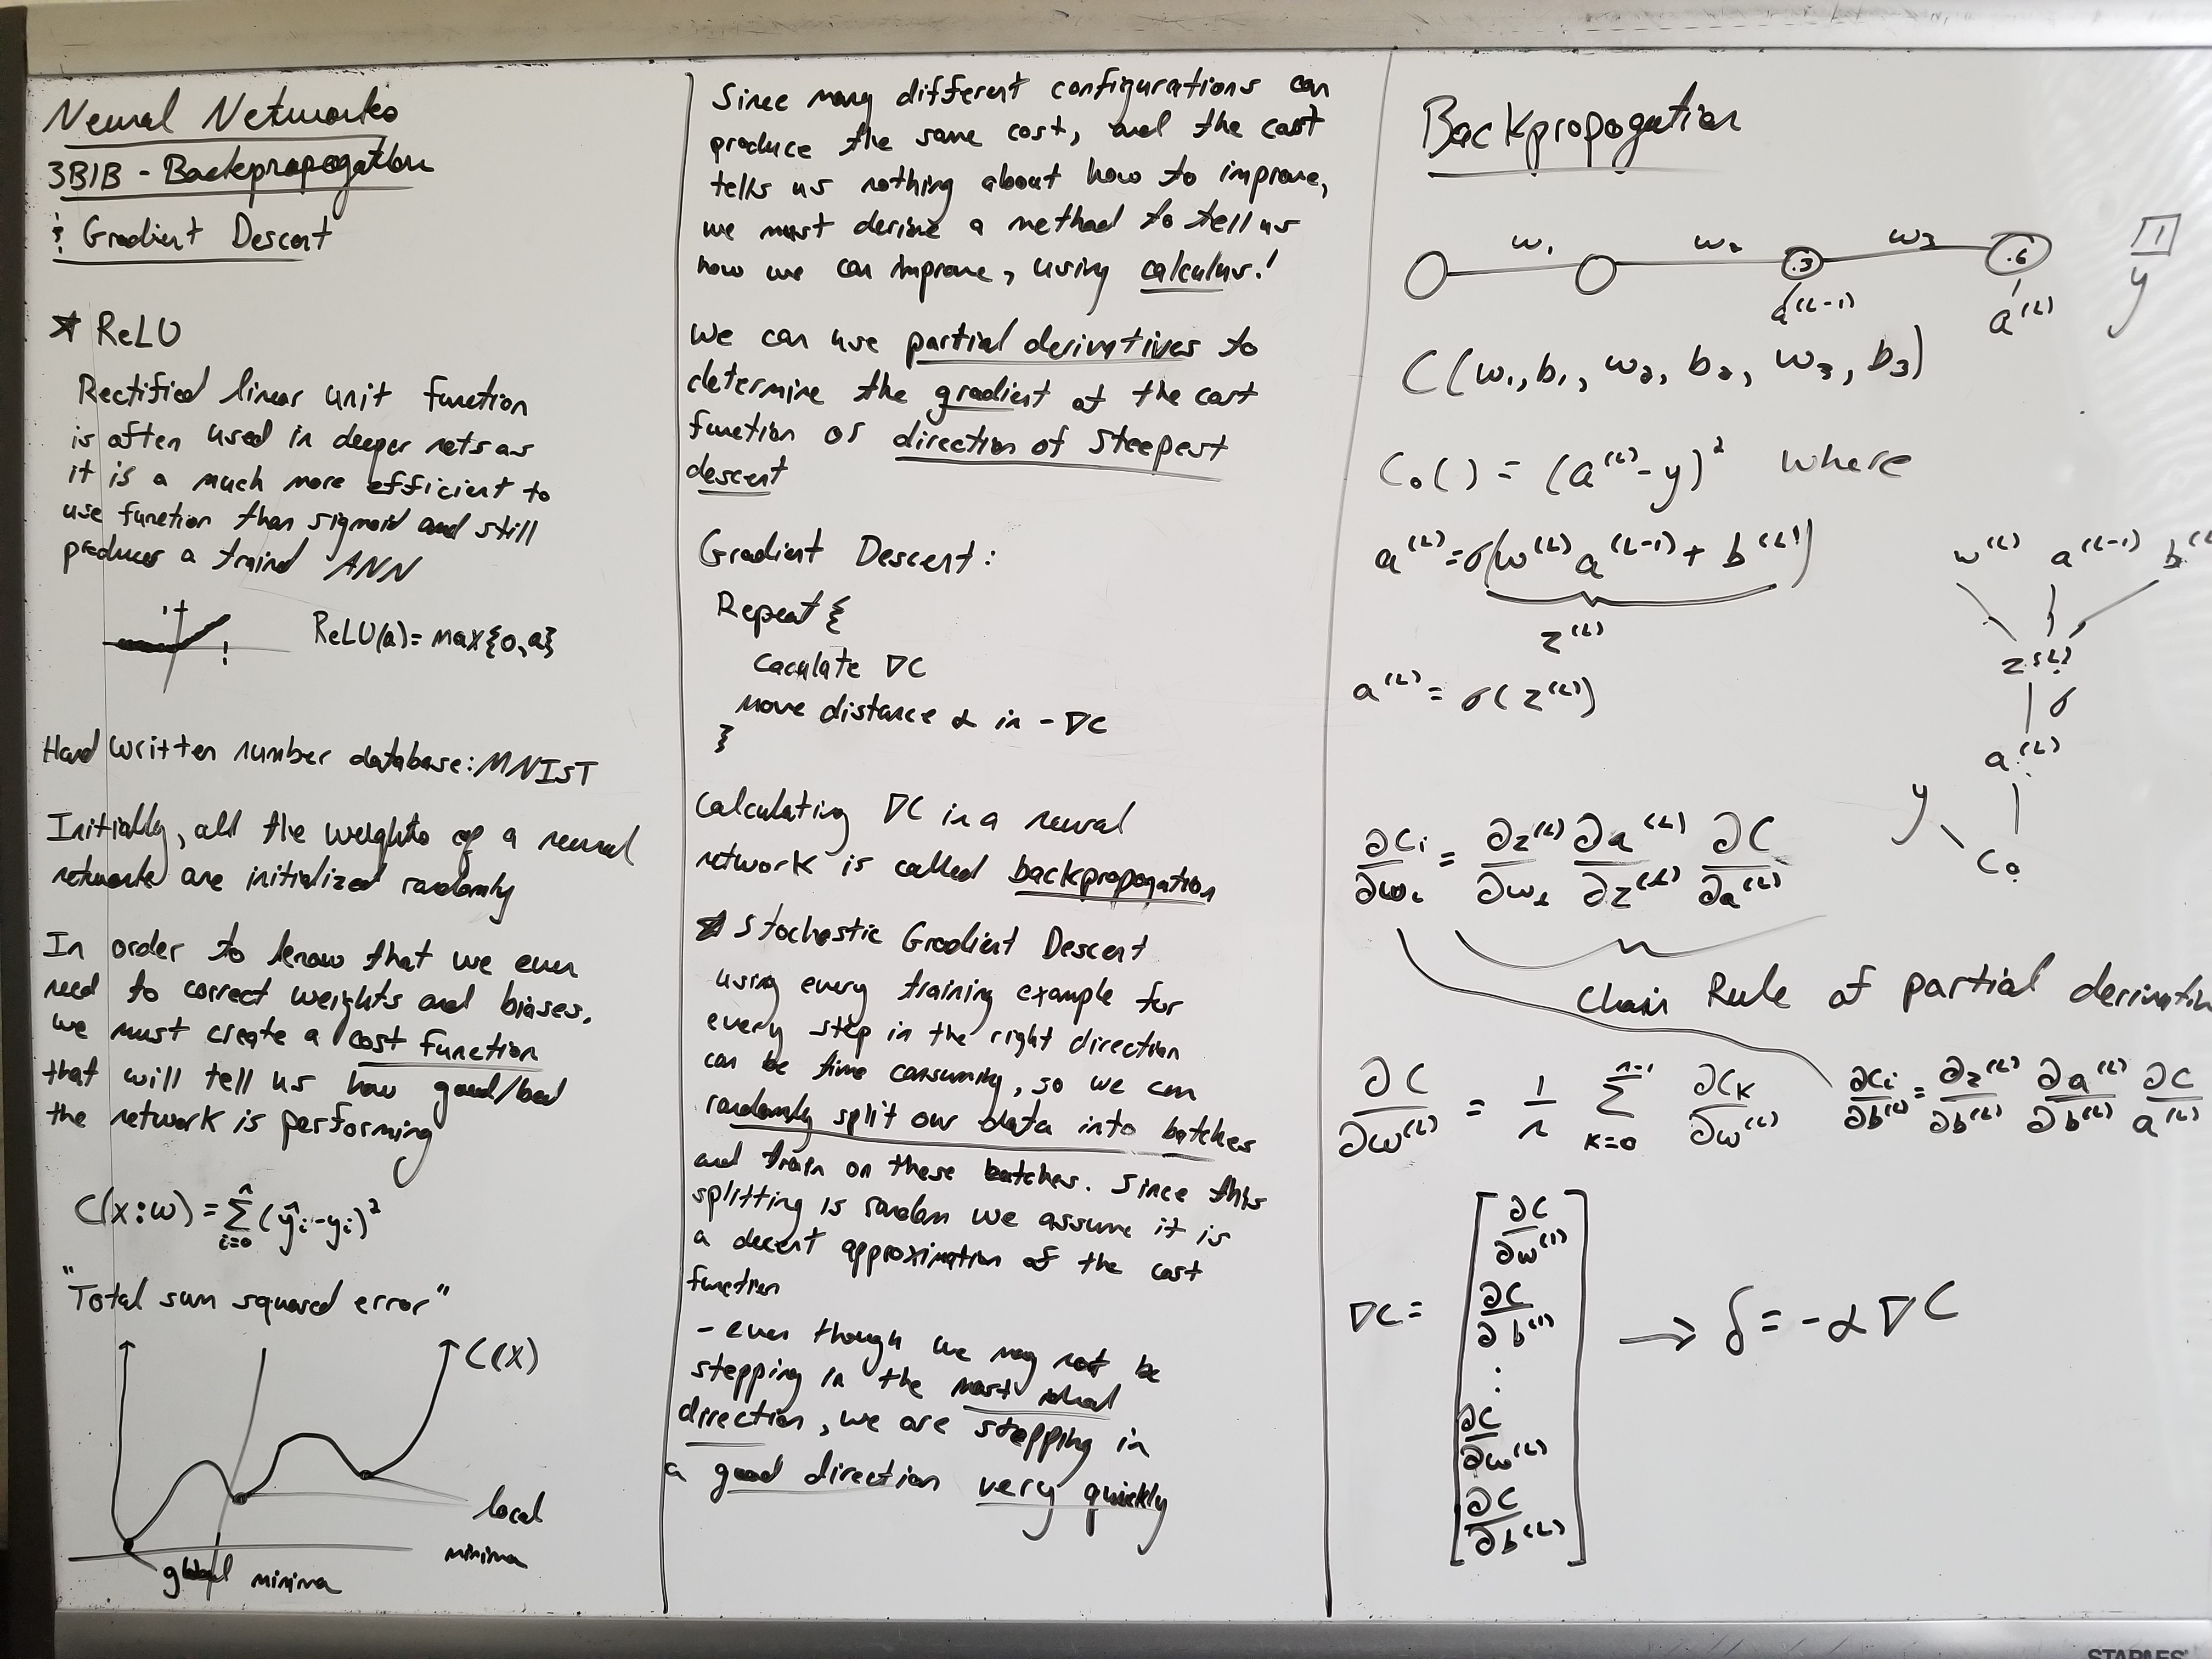 Neural Networks
3B1B - Backpropogation
& Gradient Descent
* ReLU
Rectified linear unit function
is often used in deeper nets as
it is a much more efficient to
use function than sigmoid and still
produces a traind ANN
1
1
ReLU(a) = max{0,a}
Hand written number database: MNIST
Initially, all the weights of a neural
network are initialized randomly
In order to know that we even
need to correct weights and biases,
we must create a cost function
that will tell us how good/bad
the network is performing
C(x:w) = n∑i=0 (ŷi - yi)²
"Total sum squared error"
C(x)
local
minima
global minima
Since many different configurations can
produce the same cost, and the cost
tells us nothing about how to improve,
we must derive a method to tell us
how we can improve, using calculus!
We can use partial derivatives to
determine the gradient of the cost
function or direction of steepest
descent
Gradient Descent:
Repeat {
Caculate ∇C
move distance α in -∇C
}
Calculating ∇C in a neural
network is called backpropogation
* Stochastic Gradient Descent
using every training example for
every step in the right direction
can be time consuming, so we can
randomly split our data into batches
and train on these batches. Since this
splitting is random we assume it is
a decent approximation of the cost
function
- even though we may not be
stepping in the most ideal
direction, we are stepping in
a good direction very quickly
Backpropogation
w₁ w₂ w₃
.3 .6 1
a^(L-1) a^(L) y
C(w₁, b₁, w₂, b₂, w₃, b₃)
C₀() = (a^(L) - y)² where
a^(L) = σ(w^(L) a^(L-1) + b^(L))
z^(L)
a^(L) = σ(z^(L))
w^(L) a^(L-1) b^(L
z^(L)
σ
a^(L)
y
C₀
∂Ci/∂wL = ∂z^(L)/∂wL ∂a^(L)/∂z^(L) ∂C/∂a^(L)
Chain Rule of partial derivativ
∂C/∂w^(L) = 1/n n-1∑k=0 ∂Ck/∂w^(L)
∂Ci/∂b^(L) = ∂z^(L)/∂b^(L) ∂a^(L)/∂b^(L) ∂C/a^(L)
∇C = [∂C/∂w^(1)
∂C/∂b^(1)
⋮
∂C/∂w^(L)
∂C/∂b^(L)] → δ = -α∇C
STAPLES